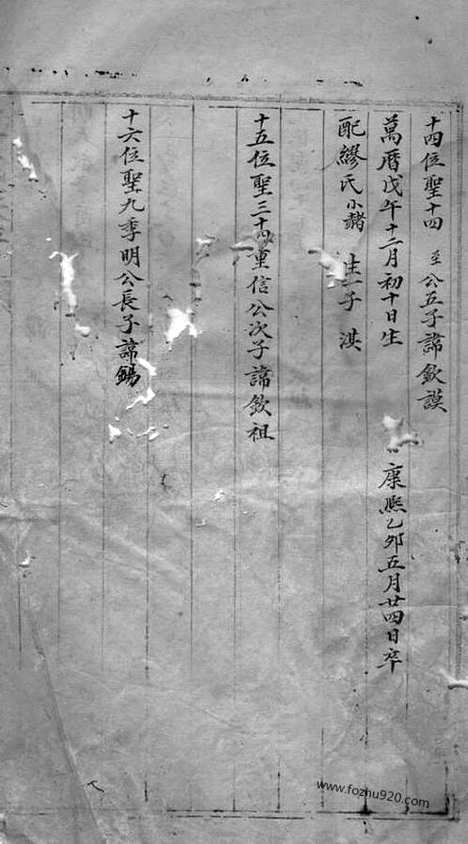 十四位聖十四 至公五子諱欽謨
萬曆戊午十二月初十日生 康熙乙卯五月廿四日卒
配繆氏小赭 生一子 淇
十五位聖三十 重信公次子諱欽祖
十六位聖九季明公長子諱錫
www.fozhu920.com